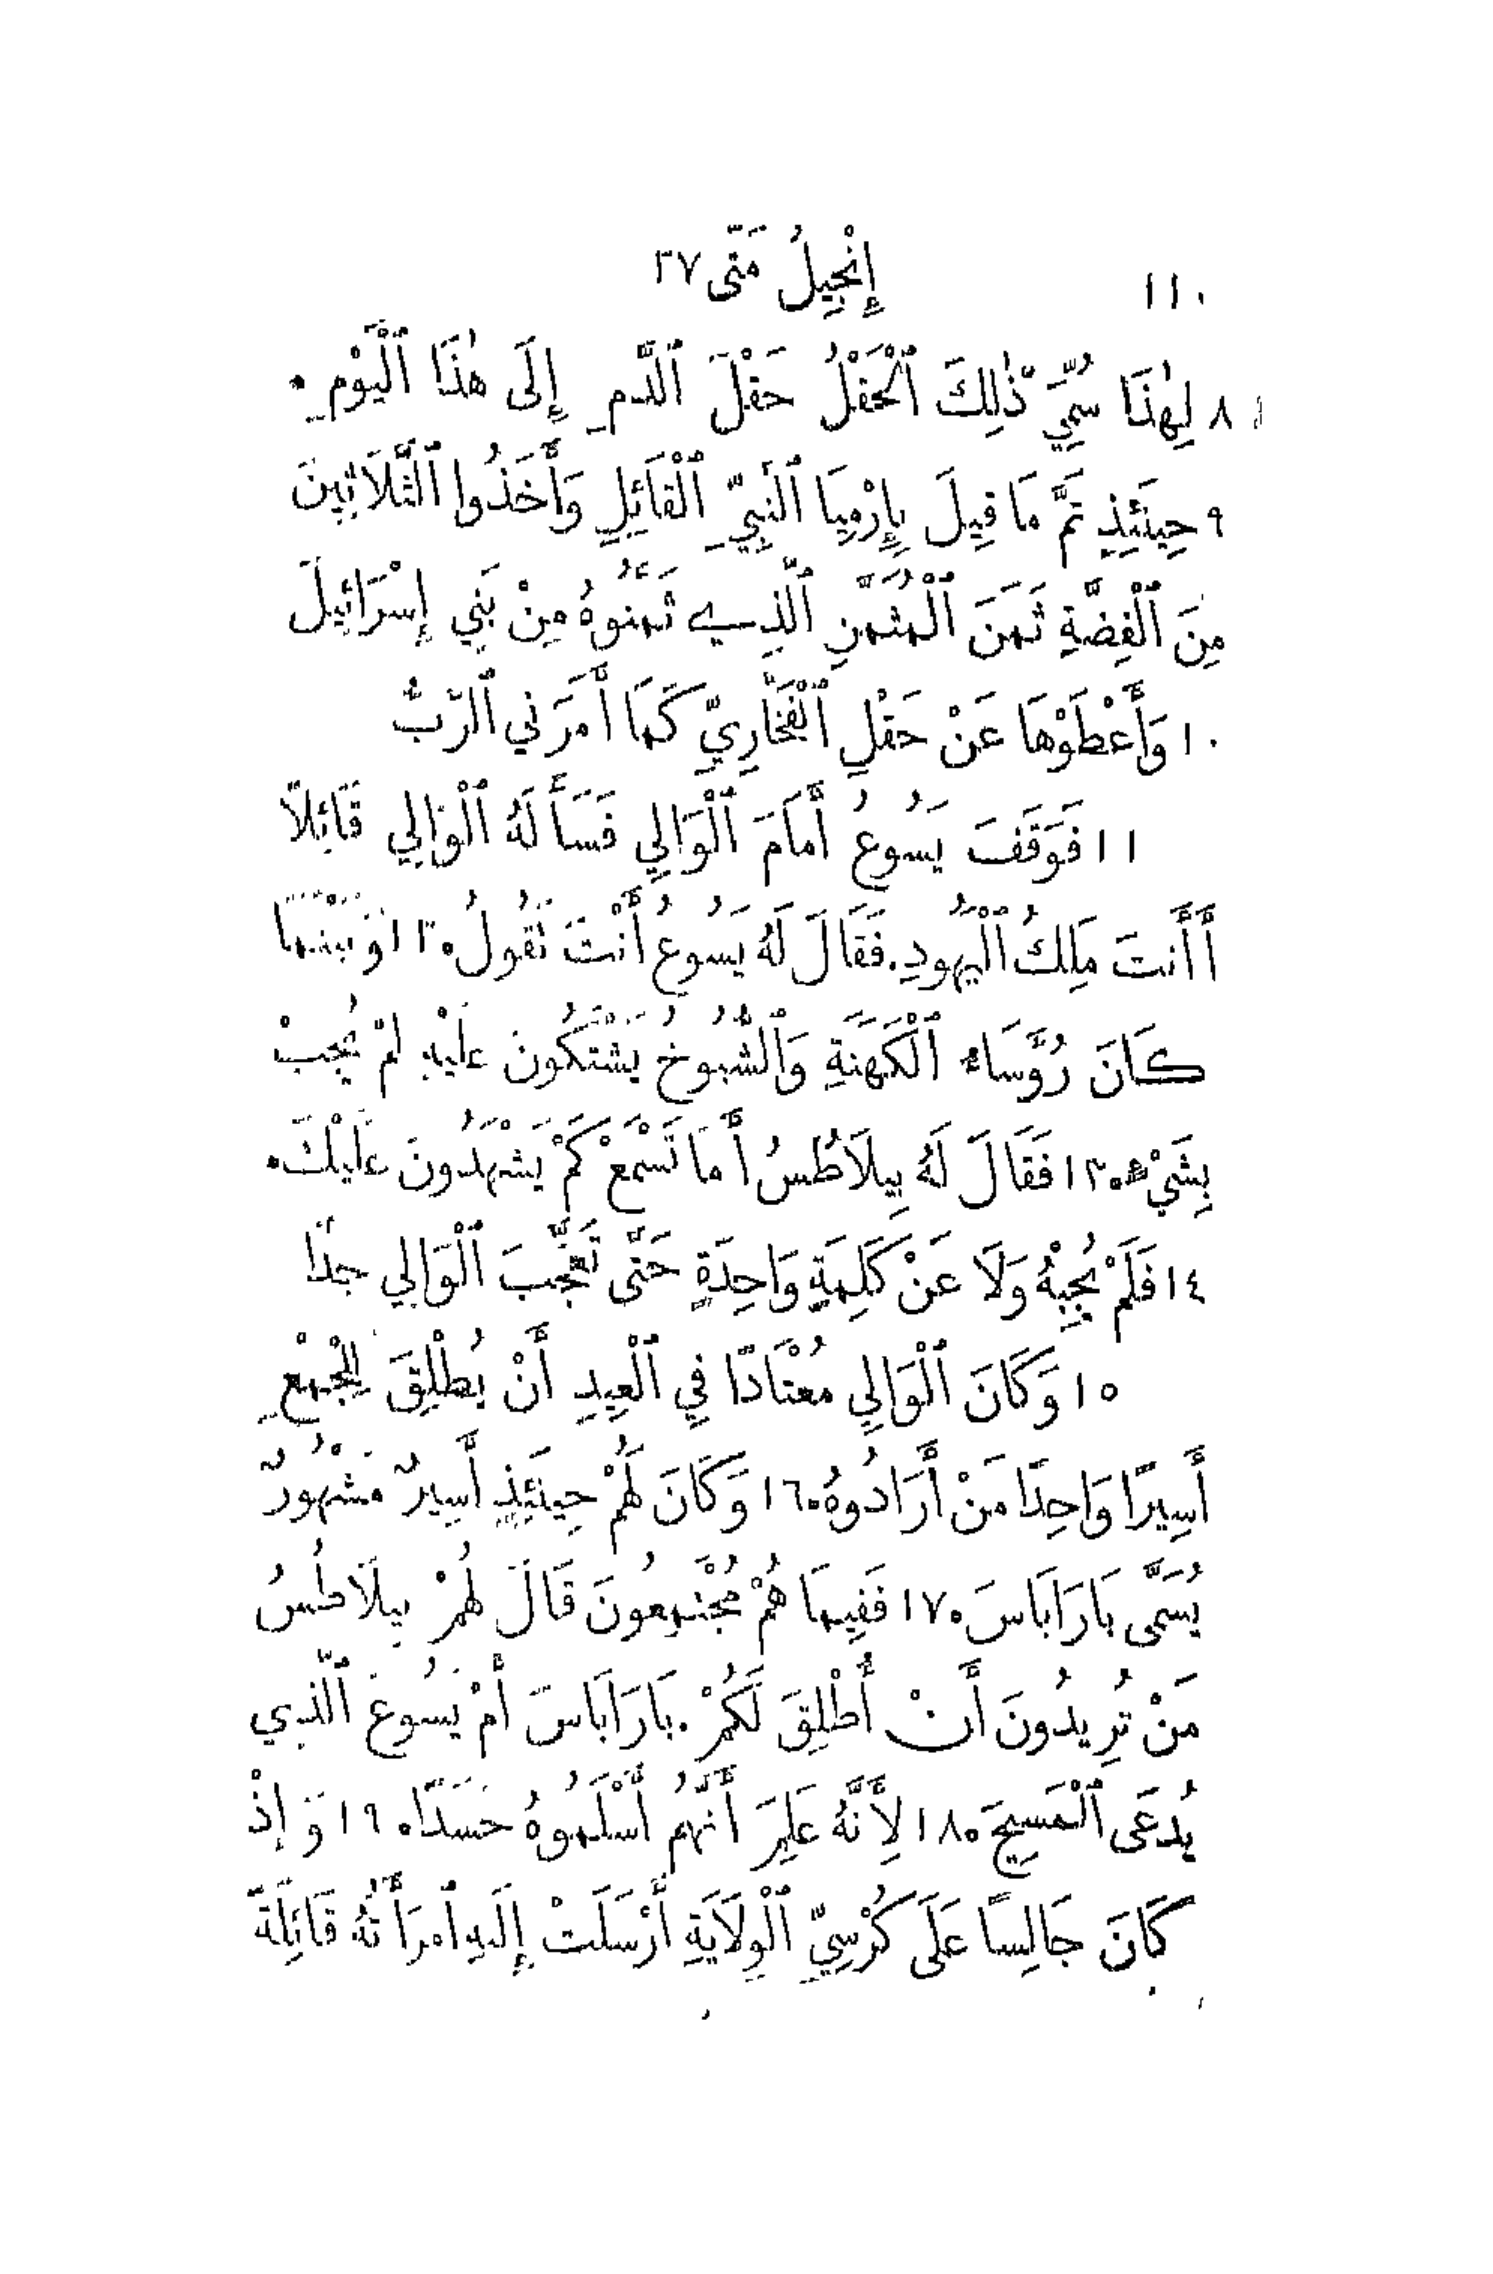 ١١٠ إِنْجِيلُ مَتَّى ٢٧
٨ لِهٰذَا سُمِّيَ ذٰلِكَ ٱلْحَقْلُ حَقْلَ ٱلدَّمِ إِلَى هٰذَا ٱلْيَوْمِ.
٩ حِينَئِذٍ تَمَّ مَا قِيلَ بِإِرْمِيَا ٱلنَّبِيِّ ٱلْقَائِلِ وَأَخَذُوا ٱلثَّلَاثِينَ
مِنَ ٱلْفِضَّةِ ثَمَنَ ٱلْمُثَمَّنِ ٱلَّذِي ثَمَّنُوهُ مِنْ بَنِي إِسْرَائِيلَ
١٠ وَأَعْطَوْهَا عَنْ حَقْلِ ٱلْفَخَّارِيِّ كَمَا أَمَرَنِي ٱلرَّبُّ
١١ فَوَقَفَ يَسُوعُ أَمَامَ ٱلْوَالِي فَسَأَلَهُ ٱلْوَالِي قَائِلًا
أَأَنْتَ مَلِكُ ٱلْيَهُودِ. فَقَالَ لَهُ يَسُوعُ أَنْتَ تَقُولُ. ١٢ وَبَيْنَمَا
كَانَ رُؤَسَاءُ ٱلْكَهَنَةِ وَٱلشُّيُوخُ يَشْتَكُونَ عَلَيْهِ لَمْ يُجِبْ
بِشَيْءٍ. ١٣ فَقَالَ لَهُ بِيلَاطُسُ أَمَا تَسْمَعُ كَمْ يَشْهَدُونَ عَلَيْكَ.
١٤ فَلَمْ يُجِبْهُ وَلَا عَنْ كَلِمَةٍ وَاحِدَةٍ حَتَّى تَعَجَّبَ ٱلْوَالِي جِدًّا
١٥ وَكَانَ ٱلْوَالِي مُعْتَادًا فِي ٱلْعِيدِ أَنْ يُطْلِقَ لِلْجَمْعِ
أَسِيرًا وَاحِدًا مَنْ أَرَادُوهُ. ١٦ وَكَانَ لَهُمْ حِينَئِذٍ أَسِيرٌ مَشْهُورٌ
يُسَمَّى بَارَابَاسَ. ١٧ فَفِيمَا هُمْ مُجْتَمِعُونَ قَالَ لَهُمْ بِيلَاطُسُ
مَنْ تُرِيدُونَ أَنْ أُطْلِقَ لَكُمْ. بَارَابَاسَ أَمْ يَسُوعَ ٱلَّذِي
يُدْعَى ٱلْمَسِيحَ. ١٨ لِأَنَّهُ عَلِمَ أَنَّهُمْ أَسْلَمُوهُ حَسَدًا. ١٩ وَإِذْ
كَانَ جَالِسًا عَلَى كُرْسِيِّ ٱلْوِلَايَةِ أَرْسَلَتْ إِلَيْهِ ٱمْرَأَتُهُ قَائِلَةً